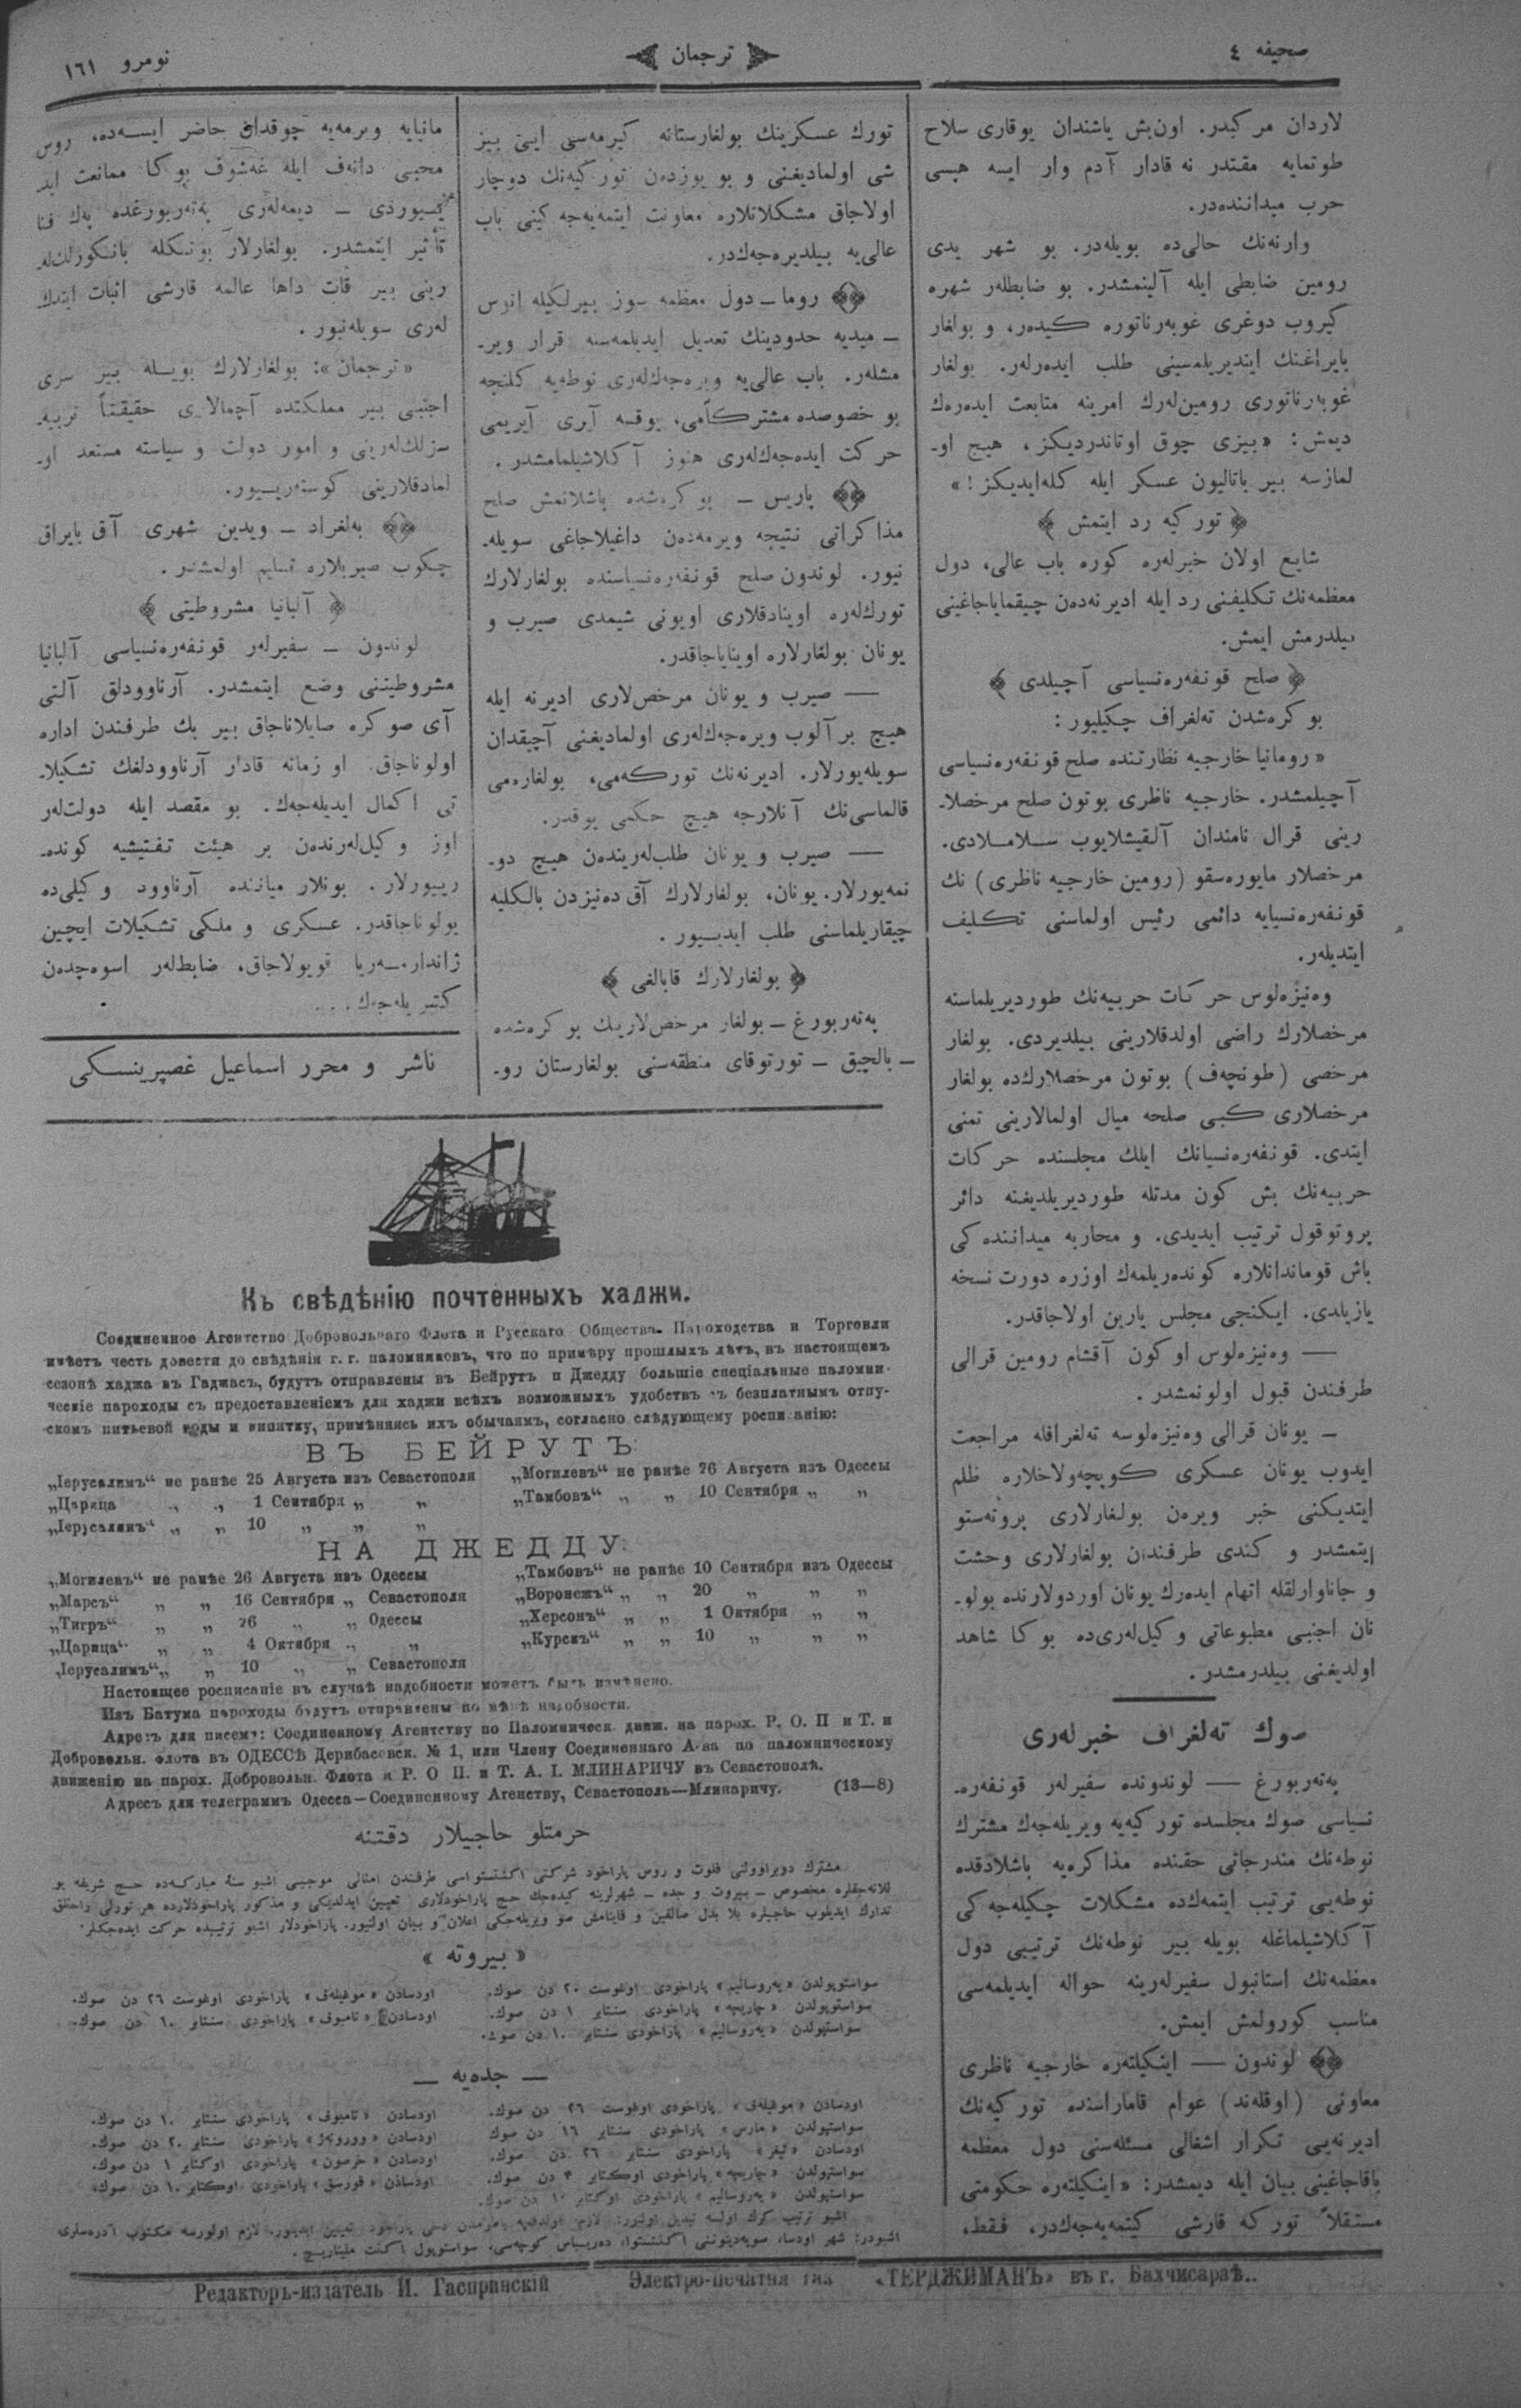 صحیفه ٤
ترجمان
نومرو ١٦١
لاردان مركیدر. اون‌بش یاشندان یوقاری سلاح
طوتمایه مقتدر نه قادار آدم وار ایسه هپسی
حرب میداننده‌در.
وارنه‌نك حالی‌ده بویله‌در. بو شهر یدی
رومین ضابطی ایله آلینمشدر. بو ضابطلەر شهره
كیروب دوغری غوبەرناتوره كیدەر، و بولغار
بایراغنك ایندیریلمەسینی طلب ایدەرلەر. بولغار
غوبەرناتوری رومین‌لەرك امرینه متابعت ایدەرەك
دیمش: «بیزی چوق اوتاندردیكز، هیچ او-
لمازسه بیر باتالیون عسكر ایله كلەایدیكز!»
﴿ توركیه رد ایتمش ﴾
شایع اولان خبرلەره كوره باب عالی، دول
معظمەنك تكلیفنی رد ایله ادیرنەدەن چیقمایاجاغینی
بیلدرمش ایمش.
﴿ صلح قونفەرەنسیاسی آچیلدی ﴾
بوكرەشدن تەلغراف چكیلیور:
«رومانیا خارجیه نظارتنده صلح قونفەرەنسیاسی
آچیلمشدر. خارجیه ناظری بوتون صلح مرخصلا-
رینی قرال نامندان آلقیشلایوب سـلامـلادی.
مرخصلار مایورەسقو (رومین خارجیه ناظری) نك
قونفەرەنسیایه دائمی رئیس اولماسنی تكلیف
ایتدیلەر.
وەنیزەلوس حركات حربیەنك طوردیریلماسنه
مرخصلارك راضی اولدقلارینی بیلدیردی. بولغار
مرخصی (طونچەف) بوتون مرخصلارك‌ده بولغار
مرخصلاری كبی صلحه میال اولمالارینی تمنی
ایتدی. قونفەرەنسیانك ایلك مجلسنده حركات
حربیەنك بش كون مدتله طوردیریلدیغنه دائر
پروتوقول ترتیب ایدیدی. و محاربه میداننده‌كی
باش قوماندانلاره كوندەریلمەك اوزره دورت نسخه
یازیلدی. ایكنجی مجلس یارین اولاجاقدر.
— وەنیزەلوس اوكون آقشام رومین قرالی
طرفندن قبول اولونمشدر.
— یونان قرالی وەنیزەلوسه تەلغرافله مراجعت
ایدوب یونان عسكری كویچەولاخلاره ظلم
ایتدیكنی خبر ویرەن بولغارلاری پروتەستو
ایتمشدر و كندی طرفندان بولغارلاری وحشت
و جاناوارلقله اتهام ایدەرك یونان اوردولارنده بولو-
نان اجنبی مطبوعاتی وكیل‌لەری‌ده بوكا شاهد
اولدیغنی بیلدرمشدر.
صوك تەلغراف خبرلەری
پەتەربورغ — لوندونده سفیرلەر قونفەرە-
نسیاسی صوك مجلسده توركیەیه ویریلەجەك مشترك
نوطەنك مندرجاتی حقنده مذاكرەیه باشلادقده
نوطەیی ترتیب ایتمەكده مشكلات چكیلەجەكی
آكلاشیلماغله بویله بیر نوطەنك ترتیبی دول
معظمەنك استانبول سفیرلەرینه حواله ایدیلمەسی
مناسب كورولمش ایمش.
لوندون — اینكیلتەره خارجیه ناظری
معاونی (اوقلەند) عوام قاماراسنده توركیەنك
ادیرنەیی تكرار اشغالی مسئلەسنی دول معظمه
باقاجاغینی بیان ایله دیمشدر: «اینكیلتەره حكومتی
مستقلاً توركه قارشی كیتمەیەجەكدر، فقط،
تورك عسكرینك بولغارستانه كیرمەسی ایـی بیز
شی اولمادیغنی و بو یوزدەن توركیەنك دوچار
اولاجاق مشكلاتلاره معاونت ایتمەیەجەكینی باب
عالی‌یه بیلدیرەجەكدر.
روما — دول معظمه سوز بیرلكیله انوس
— میدیه حدودینك تعدیل ایدیلمەسنه قرار ویر-
مشلەر. باب عالی‌یه ویرەجەكلەری نوطەیه كلنجه
بو خصوصده مشتركاًمی، یوقسه آیری آیریمی
حركت ایدەجەك‌لەری هنوز آكلاشیلمامشدر.
پاریس — بوكرەشده باشلانمش صلح
مذاكراتی نتیجه ویرمەدەن داغیلاجاغی سویلە-
نیور. لوندون صلح قونفەرەنسیاسنده بولغارلارك
تورك‌لەره اوینادقلاری اویونی شیمدی صیرب و
یونان بولغارلاره اوینایاجاقدر.
— صیرب و یونان مرخص‌لاری ادیرنه ایله
هیچ بر آلوب ویرەجەك‌لەری اولمادیغنی آچیقدان
سویلەیورلار. ادیرنەنك توركەمی، بولغارەمی
قالماسی‌نك آنلارجه هیچ حكمی یوقدر.
— صیرب و یونان طلب‌لەریندەن هیچ دو-
نمەیورلار. یونان، بولغارلارك آق دەنیزدن بالكلیه
چیقاریلماسنی طلب ایدیـیور.
﴿ بولغارلارك قابالغی ﴾
پەتەربورغ — بولغار مرخص‌لارینك بوكرەشده
— بالچیق — تورتوقای منطقەسنی بولغارستان رو-
مانیایه ویرمەیه چوقدان حاضر ایسـەده، روس
محبی دانەف ایله غەشوف بوكا ممانعت ایـد
یـیوردی — دیمەلەری پەتەربورغده پەك فنا
تأثیر ایتمشدر. بولغارلار بونـكله
رینی بیر قات داها عالمه قارشی اثبات ایتدك
لەری سویلەنیور.
«ترجمان»: بولغارلارك بویـله بیر سری
اجنبی بیر مملكتده آچمالاری حقیقتاً تربیه-
سزلك‌لەرینی و امور دولت و سیاسته مستعد او-
لمادقلارینی كوستەریـیور.
بەلغراد — ویدین شهری آق بایراق
چكوب صیربلاره تسلیم اولمشدر.
﴿ آلبانیا مشروطیتی ﴾
لوندون — سفیرلەر قونفەرەنسیاسی آلبانیا
مشروطیتنی وضع ایتمشدر. آرناوودلق آلتی
آی صوكره صایلاناجاق بیر بك طرفندن اداره
اولوناجاق. او زمانه قادار آرناوودلغك تشكیلا-
تی اكمال ایدیلەجەك. بو مقصد ایله دولت‌لەر
اوز وكیل‌لەرندەن بر هیئت تفتیشیه كوندە-
ریـیورلار. بونلار میاننده آرناوود وكیلی‌ده
بولوناجاقدر. عسكری و ملكی تشكیلات ایچین
ژاندارمـەریا قویولاجاق، ضابط‌لەر اسوەچدەن
كتیریلەجەك...
ناشر و محرر اسماعیل غصپرینسـكی
Къ свѣдѣнію почтенныхъ хаджи.
Соединенное Агентство Добровольнаго Флота и Русскаго Общества Пароходства и Торговли
имѣетъ честь довести до свѣдѣнія г. г. паломниковъ, что по примѣру прошлыхъ лѣтъ, въ настоящемъ
сезонѣ хаджа въ Гаджасъ, будутъ отправлены въ Бейрутъ и Джедду большіе спеціальные паломни-
ческіе пароходы съ предоставленіемъ для хаджи всѣхъ возможныхъ удобствъ съ безплатнымъ отпу-
скомъ питьевой воды и кипятку, примѣняясь ихъ обычаямъ, согласно слѣдующему росписанію:
ВЪ БЕЙРУТЪ:
„Іерусалимъ“ не ранѣе 25 Августа изъ Севастополя
„Царица „ „ 1 Сентября „ „
„Іерусалимъ“ „ „ 10 „ „ „
„Могилевъ“ не ранѣе 26 Августа изъ Одессы
„Тамбовъ“ „ „ 10 Сентября „ „
НА ДЖЕДДУ:
„Могилевъ“ не ранѣе 26 Августа изъ Одессы
„Марсъ“ „ „ 16 Сентября „ Севастополя
„Тигръ“ „ „ 26 „ „ Одессы
„Царица“ „ „ 4 Октября „ „
„Іерусалимъ“ „ „ 10 „ „ Севастополя
„Тамбовъ“ не ранѣе 10 Сентября изъ Одессы
„Воронежъ“ „ „ 20 „ „ „
„Херсонъ“ „ „ 1 Октября „ „
„Курскъ“ „ „ 10 „ „ „
Настоящее росписаніе въ случаѣ надобности можетъ быть измѣнено.
Изъ Батума пароходы будутъ отправлены по мѣрѣ надобности.
Адресъ для писемъ: Соединенному Агентству по Паломническ. движ. на парох. Р. О. П и Т. и
Добровольн. флота въ ОДЕССѢ Дерибасовск. № 1, или Члену Соединеннаго А-ва по паломническому
движенію на парох. Добровольн. Флота и Р. О П. и Т. А. І. МЛИНАРИЧУ въ Севастополѣ.
Адресъ для телеграммъ Одесса—Соединенному Агенству, Севастополь—Млинаричу. (13—8)
حرمتلو حاجیلار دقتنه
مشترك دوبراوولنی فلوت و روس پاراخود شركتی اگنتستواسی طرفندن امثالی موجبی اشبو سنهٔ مباركـەده حـج شریفه یو
للانەجقلره مخصوص — بیروت و جده — شهرلرینه كیدەجك حـج پاراخودلاری تعیین ایدلدیكی و مذكور پاراخودلارده هر تورلی راحتلق
تدارك ایدیلوب حاجیلره بلا بدل صالقین و قاینامش صو ویریلەجكی اعلان و بیان اولنیور. پاراخودلار اشبو ترتیبده حركت ایدەجكلر.
«بیروته»
سواستوپولدن «یەروسالیم» پاراخودی اوغوست ٢٠ دن صوك.
سواستوپولدن «چاریچه» پاراخودی سنتابر ١ دن صوك.
سواستپولدن «یەروسالیم» پاراخودی سنتابر ١٠ دن صوك.
اودسادن «موغیلەف» پاراخودی اوغوست ٢٦ دن صوك.
اودسادن «تامبوف» پاراخودی سنتابر ١٠ دن صوك.
— جدەیه —
اودسادن «موغیلەف» پاراخودی اوغوست ٢٦ دن صوك.
سواستپولدن «مارس» پاراخودی سنتابر ١٦ دن صوك
اودسادن «تیغر» پاراخودی سنتابر ٢٦ دن صوك.
سواستپولدن «چاریچه» پاراخودی اوكتابر ٤ دن صوك.
سواستپولدن «یەروسالیم» پاراخودی اوكتابر ١٠ دن صوك.
اودسادن «تامبوف» پاراخودی سنتابر ١٠ دن صوك.
اودسادن «وورونەژ» پاراخودی سنتابر ٢٠ دن صوك.
اودسادن «خرصون» پاراخودی اوكتابر ١ دن صوك.
اودسادن «قورسق» پاراخودی اوكتابر ١٠ دن صوك.
اشبو ترتیب كرك اولسه تبدیل اولنیور.
اشبودر: شهر اودسا، صویەدینوننی اگنتستوا، دەریباس كوچەسی، سواستوپول اگنت ملیناریـچ.
Редакторъ-издатель И. Гаспринскій
Электро-печатня газ. «ТЕРДЖИМАНЪ» въ г. Бахчисараѣ..